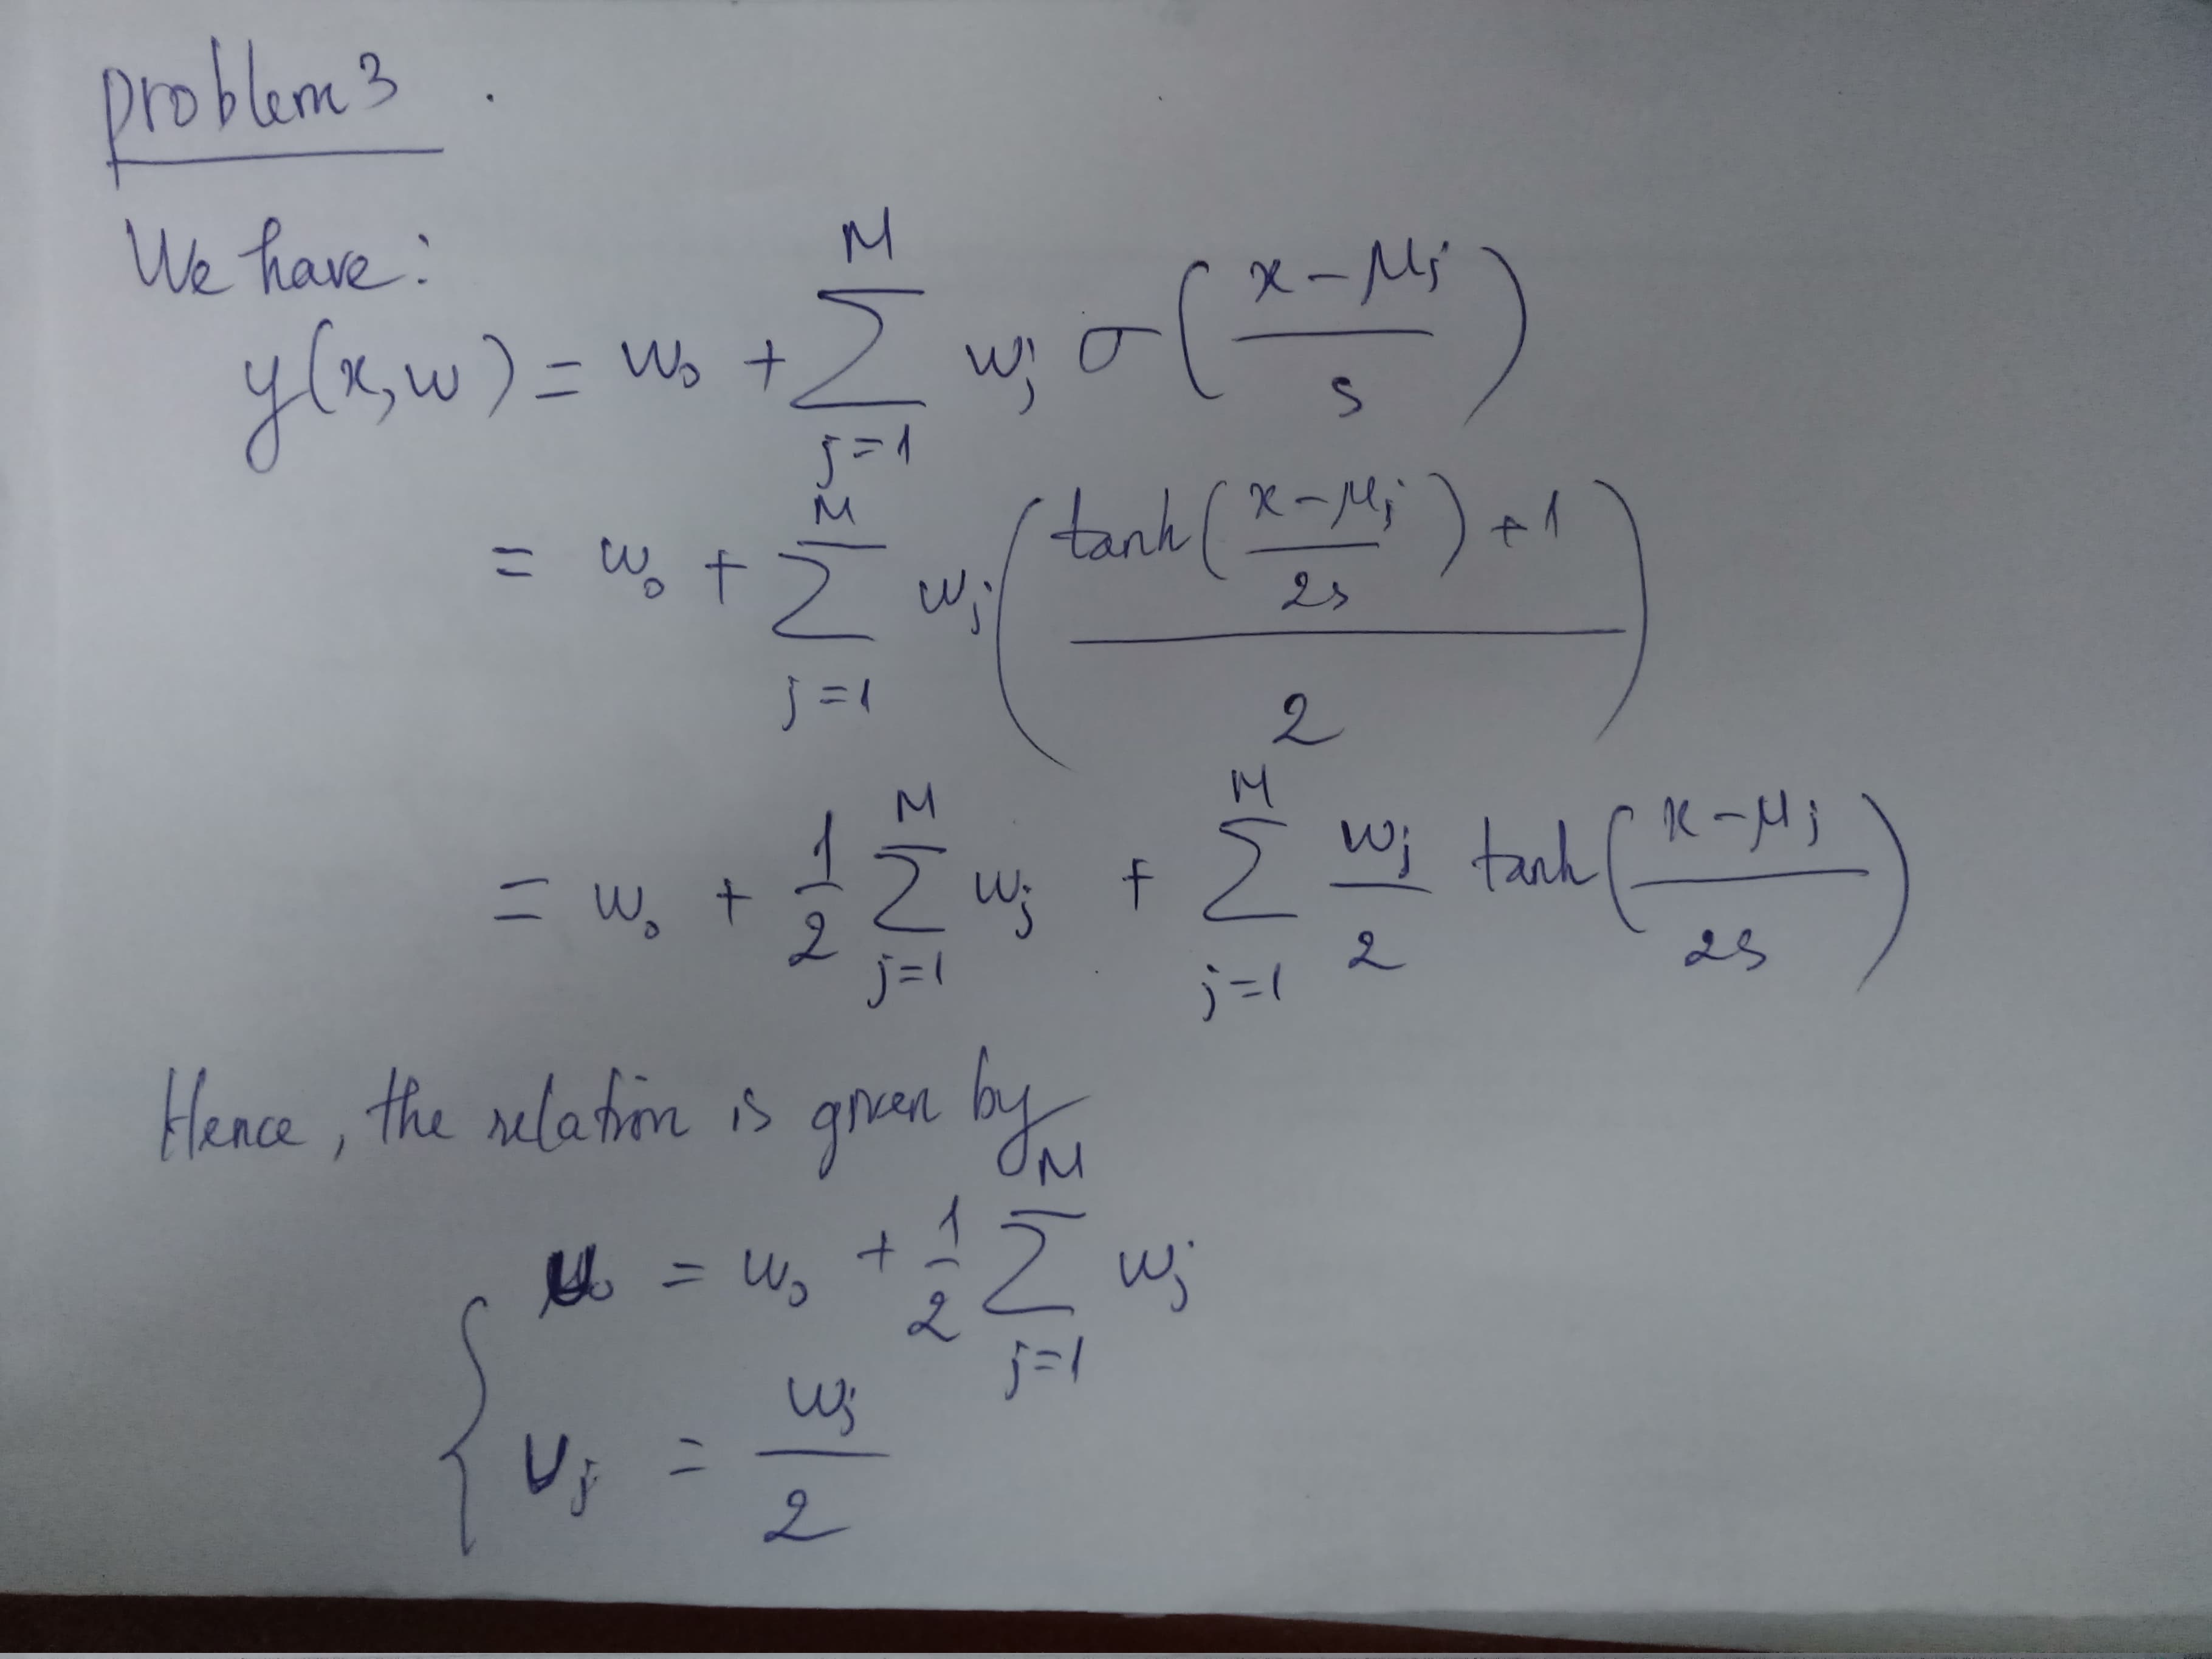 problem 3 .
We have:
y(x,w) = w₀ + ∑_{j=1}^{M} w_j σ((x-μ_j)/s)
= w₀ + ∑_{j=1}^{M} w_j ((tanh((x-μ_j)/2s) + 1)/2)
= w₀ + 1/2 ∑_{j=1}^{M} w_j + ∑_{j=1}^{M} w_j/2 tanh((x-μ_j)/2s)
Hence, the relation is given by
{ u₀ = w₀ + 1/2 ∑_{j=1}^{M} w_j
u_j = w_j/2